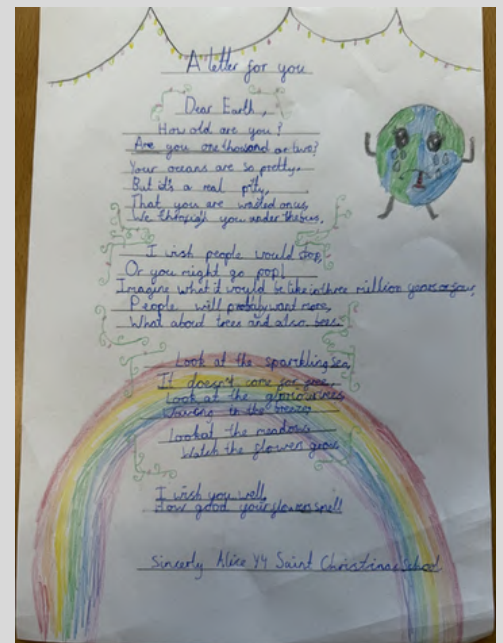 A letter for you
Dear Earth,
How old are you?
Are you one thousand or two?
Your oceans are so pretty,
But it's a real pity,
That you are wasted on us,
We through you under the bus.
I wish people would stop,
Or you might go pop!
Imagine what it would be like in three million years or four,
People will probably want more,
What about trees and also bees.
Look at the sparkling sea,
It doesn't come for free,
Look at the glorious trees
Waving in the breeze
Look at the meadows
Watch the flowers grow
I wish you well,
How good your flowers smell
Sincerly Alice Y4 Saint Christinas School